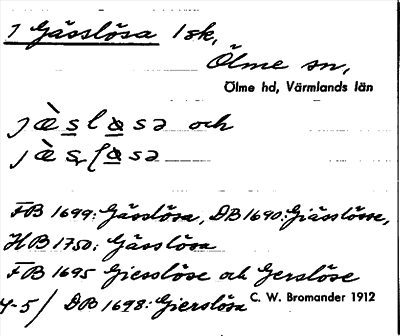 1 Gässlösa 1 sk,
Ölme sn,
Ölme hd, Värmlands län
och
FB 1699: Gässlösa, DB 1690: Giässlösse,
HB 1750: Gässlösa
FB 1695 Giesslöse och Gerslöse
4-5/ DB 1698: Gierslösa C. W. Bromander 1912